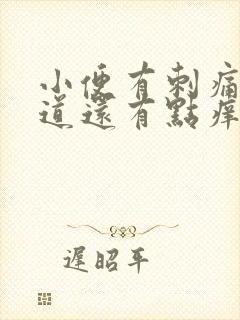 小便有刺痛
道還有點痒
遲昭平